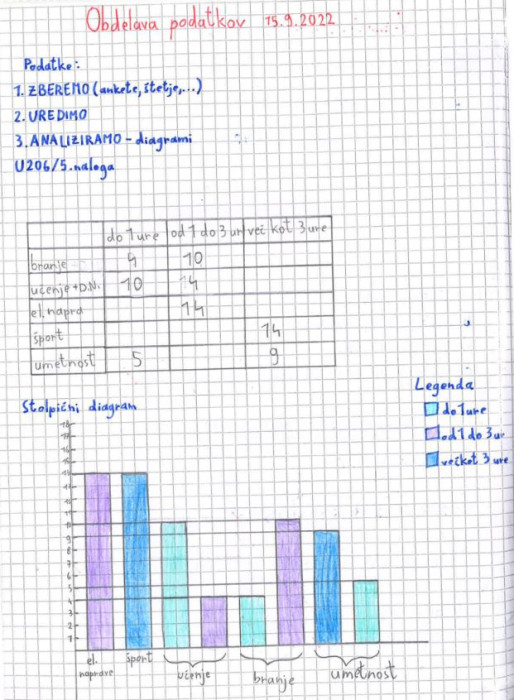 Obdelava podatkov 15.9.2022
Podatke:
1. ZBEREMO (ankete, štetje,...)
2. UREDIMO
3. ANALIZIRAMO - diagrami
U206/5.naloga
do 1 ure od 1 do 3 ur več kot 3 ure
branje 4 10
učenje + D.N. 10 14
el. napra 14
šport 14
umetnost 5 9
Legenda
do 1 ure
od 1 do 3 ur
več kot 3 ure
Stolpični diagram
18
17
16
15
14
13
12
11
10
9
8
7
6
5
4
3
2
1
el. naprave
šport
učenje
branje
umetnost